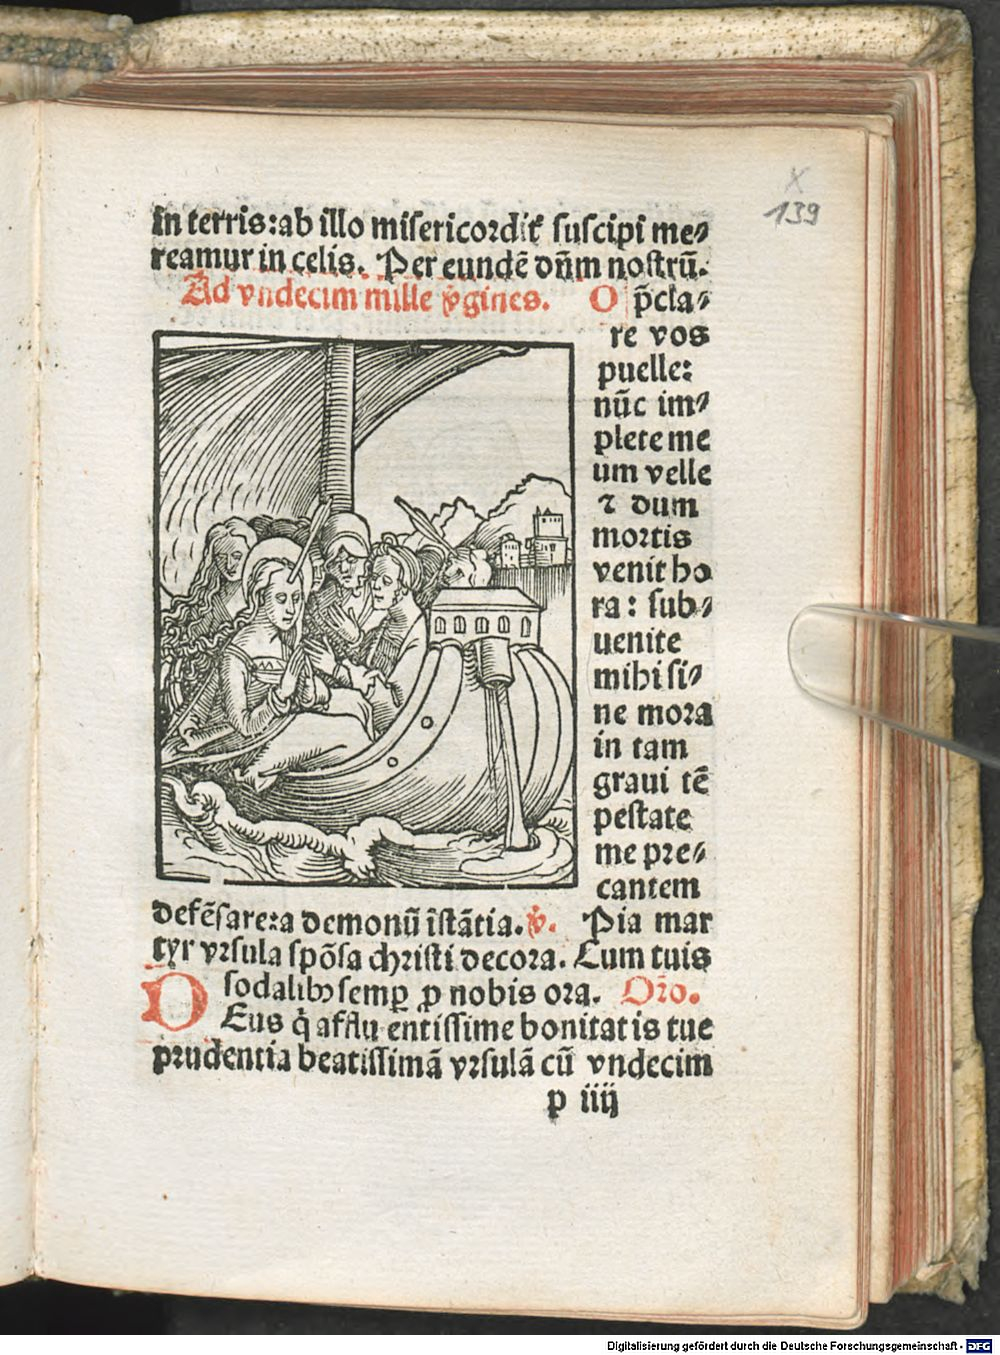 X
139
in terris:ab illo misericordit᷑ suscipi me⸗
reamur in celis. Per eundē dn̄m nostrū.
Ad vndecim mille v̄gines. O p̄cla⸗
re vos
puelle:
nūc im⸗
plete me
um velle
⁊ dum
mortis
venit ho
ra: sub⸗
uenite
mihi si⸗
ne mora
in tam
graui tē
pestate
me pre⸗
cantem
defēsare:a demonū īstātia. v̄. Pia mar
tyr vrsula spōsa christi decora. Cum tuis
sodalibꝫ semꝑ ꝓ nobis ora. Oro.
DEus q̇ afflu entissime bonitatis tue
prudentia beatissimā vrsulā cū vndecim
p iiij
Digitalisierung gefördert durch die Deutsche Forschungsgemeinschaft - DFG